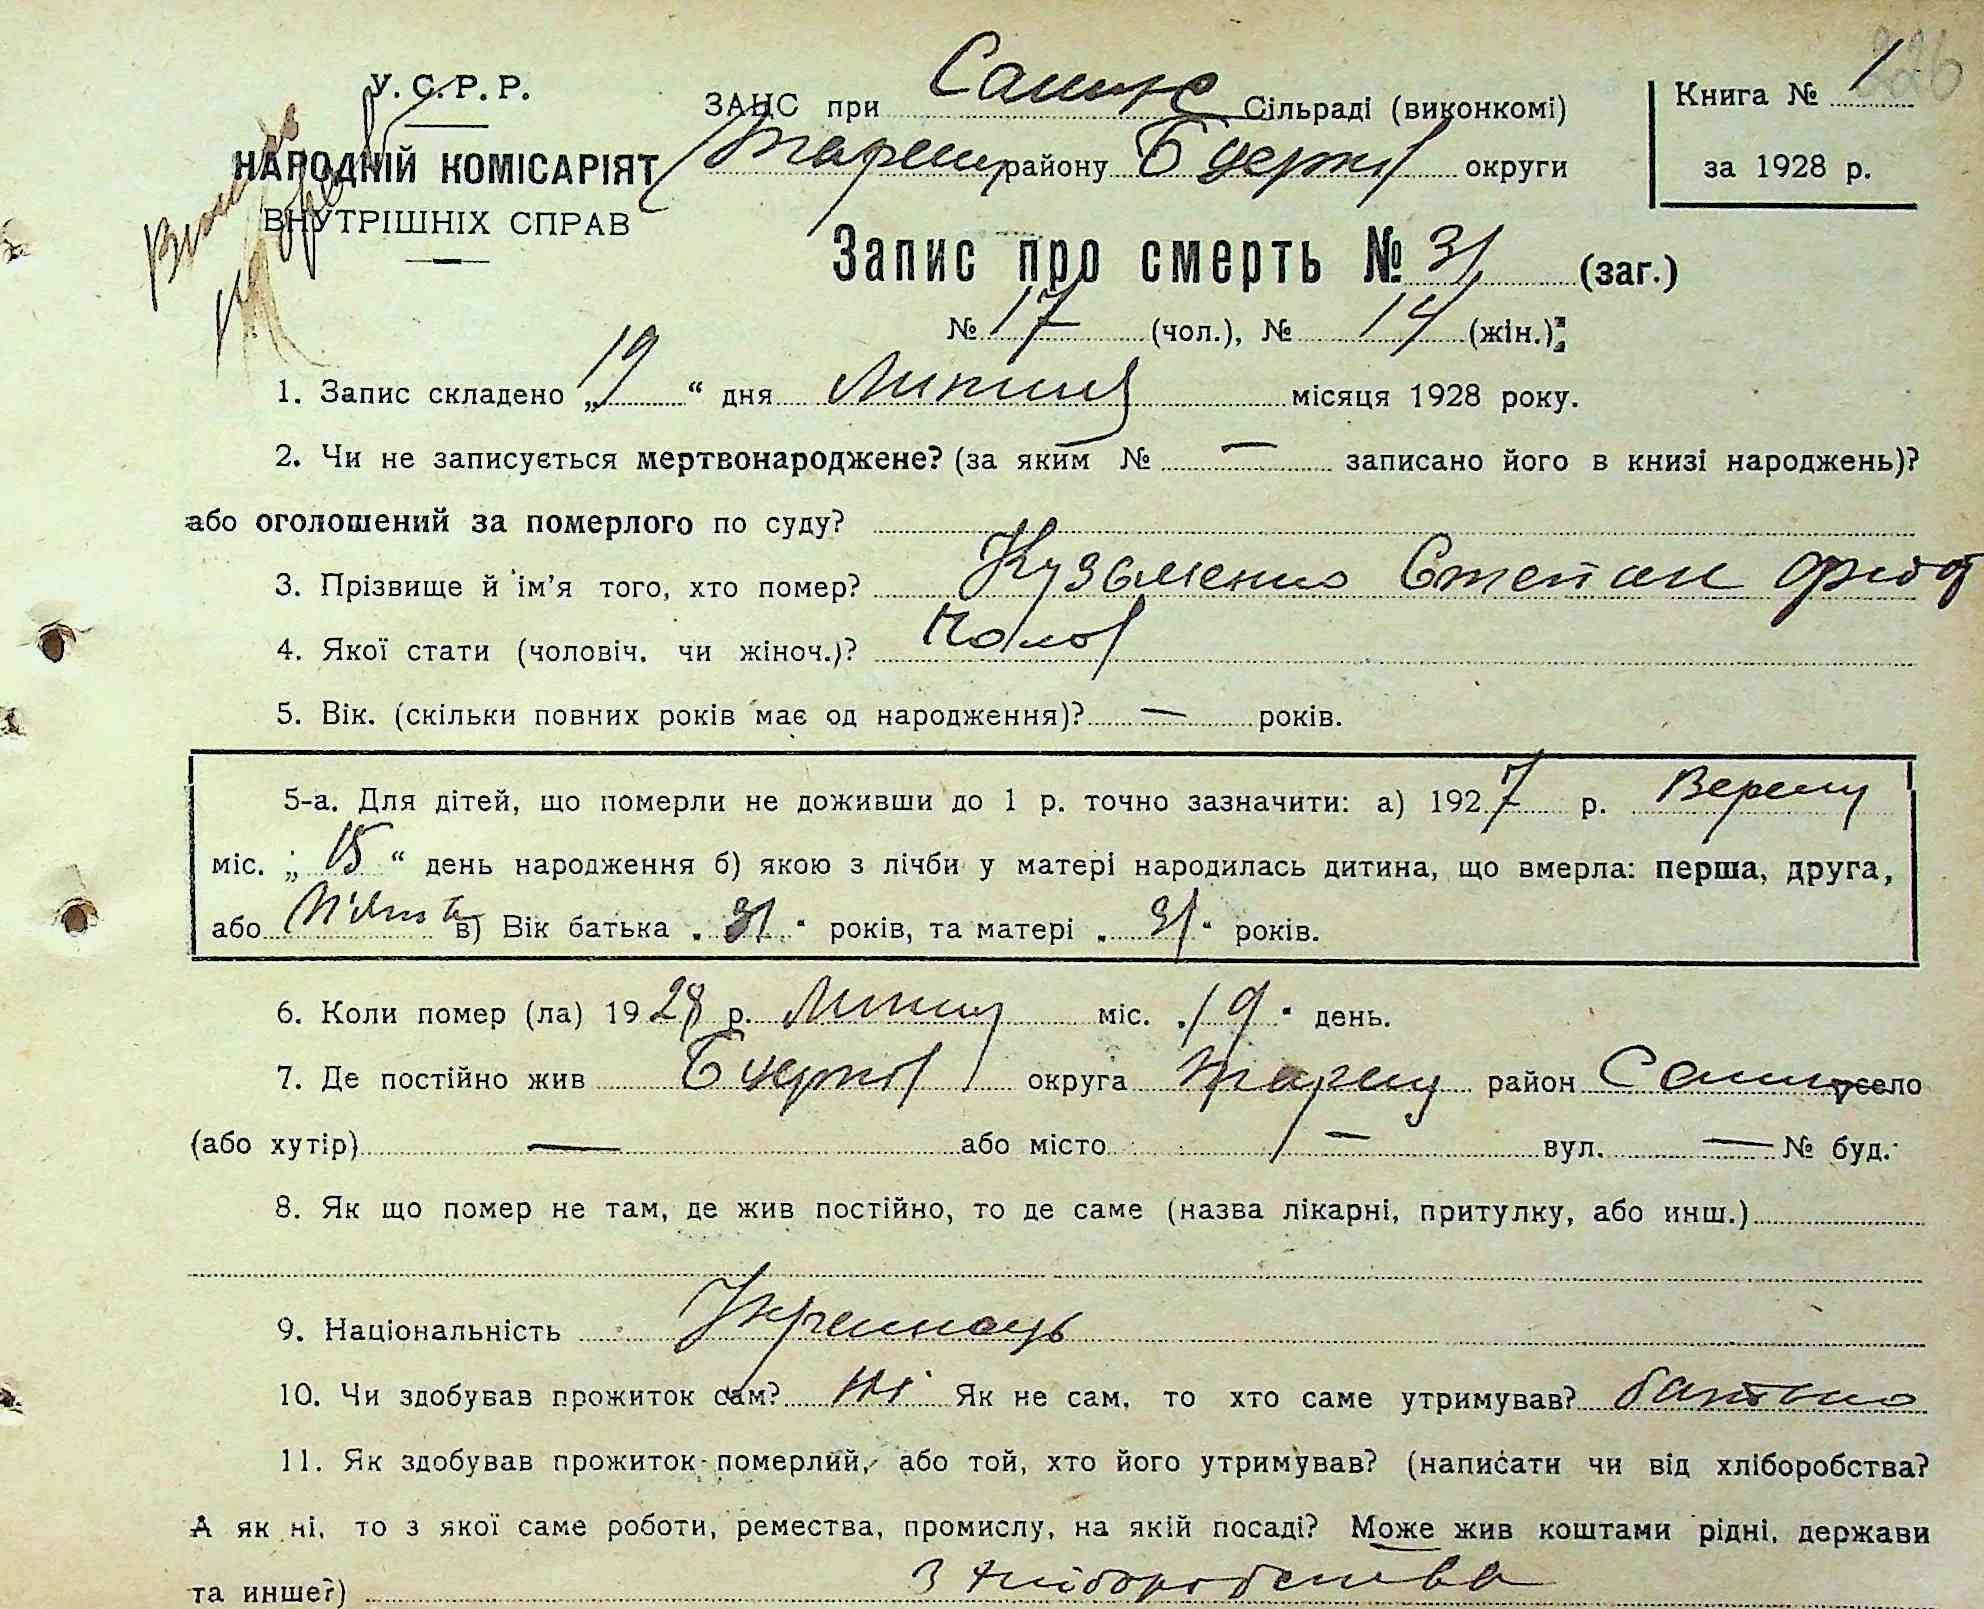 226
У.С.Р.Р.
НАРОДНІЙ КОМІСАРІЯТ
ВНУТРІШНІХ СПРАВ
ЗАЦС при Сільраді (виконкомі)
району Б церків округи
Книга № 1
за 1928 р.
Запис про смерть № 31 (заг.)
№ 17 (чол.), № 14 (жін.);
1. Запис складено „19“ дня Липня місяця 1928 року.
2. Чи не записується мертвонароджене? (за яким № — записано його в книзі народжень)?
або оголошений за померлого по суду?
3. Прізвище й ім'я того, хто помер? Кузьменко Степан
4. Якої стати (чоловіч. чи жіноч.)? Чолов
5. Вік. (скільки повних років має од народження)? — років.
5-а. Для дітей, що померли не доживши до 1 р. точно зазначити: а) 1927 р. Вересн
міс. „15“ день народження б) якою з лічби у матері народилась дитина, що вмерла: перша, друга,
або в) Вік батька „31“ років, та матері „31“ років.
6. Коли помер (ла) 1928 р. Липня міс. „19“ день.
7. Де постійно жив Б церків округа район село
(або хутір) — або місто — вул. — № буд.
8. Як що помер не там, де жив постійно, то де саме (назва лікарні, притулку, або инш.)
9. Національність Українець
10. Чи здобував прожиток сам? Ні Як не сам, то хто саме утримував? батько
11. Як здобував прожиток померлий, або той, хто його утримував? (написати чи від хліборобства?
А як ні, то з якої саме роботи, ремества, промислу, на якій посаді? Може жив коштами рідні, держави
та инше?) З хліборобства